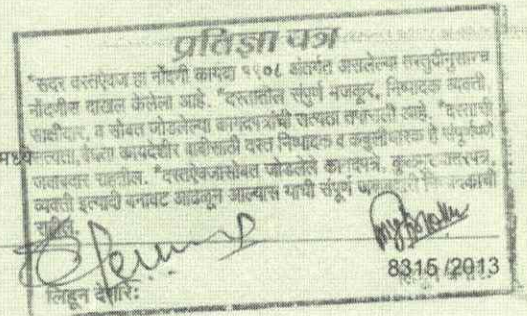 प्रतिज्ञा पत्र
"सदर दस्तऐवज हा नोंदणी कायदा १९०८ अंतर्गत असलेल्या तरतुदीनुसारच
नोंदणीस दाखल केलेला आहे. "दस्तातील संपुर्ण मजकूर, निष्पादक व्यक्ती
साक्षीदार, व सोबत जोडलेल्या कागदपत्रांची सत्यता तपासली आहे. "दस्ताची
मध्ये
सत्यता, वैधता कायदेशीर बाबींसाठी दस्त निष्पादक व कबुलीधारक हे संपूर्णपणे
जबाबदार राहतील. "दस्तऐवजासोबत जोडलेले कागदपत्रे, कुलमुखत्यारपत्र,
व्यक्ती इत्यादी बनावट आढळून आल्यास याची संपूर्ण जबाबदारी
राहील.
8315 /2013
लिहून देणार: